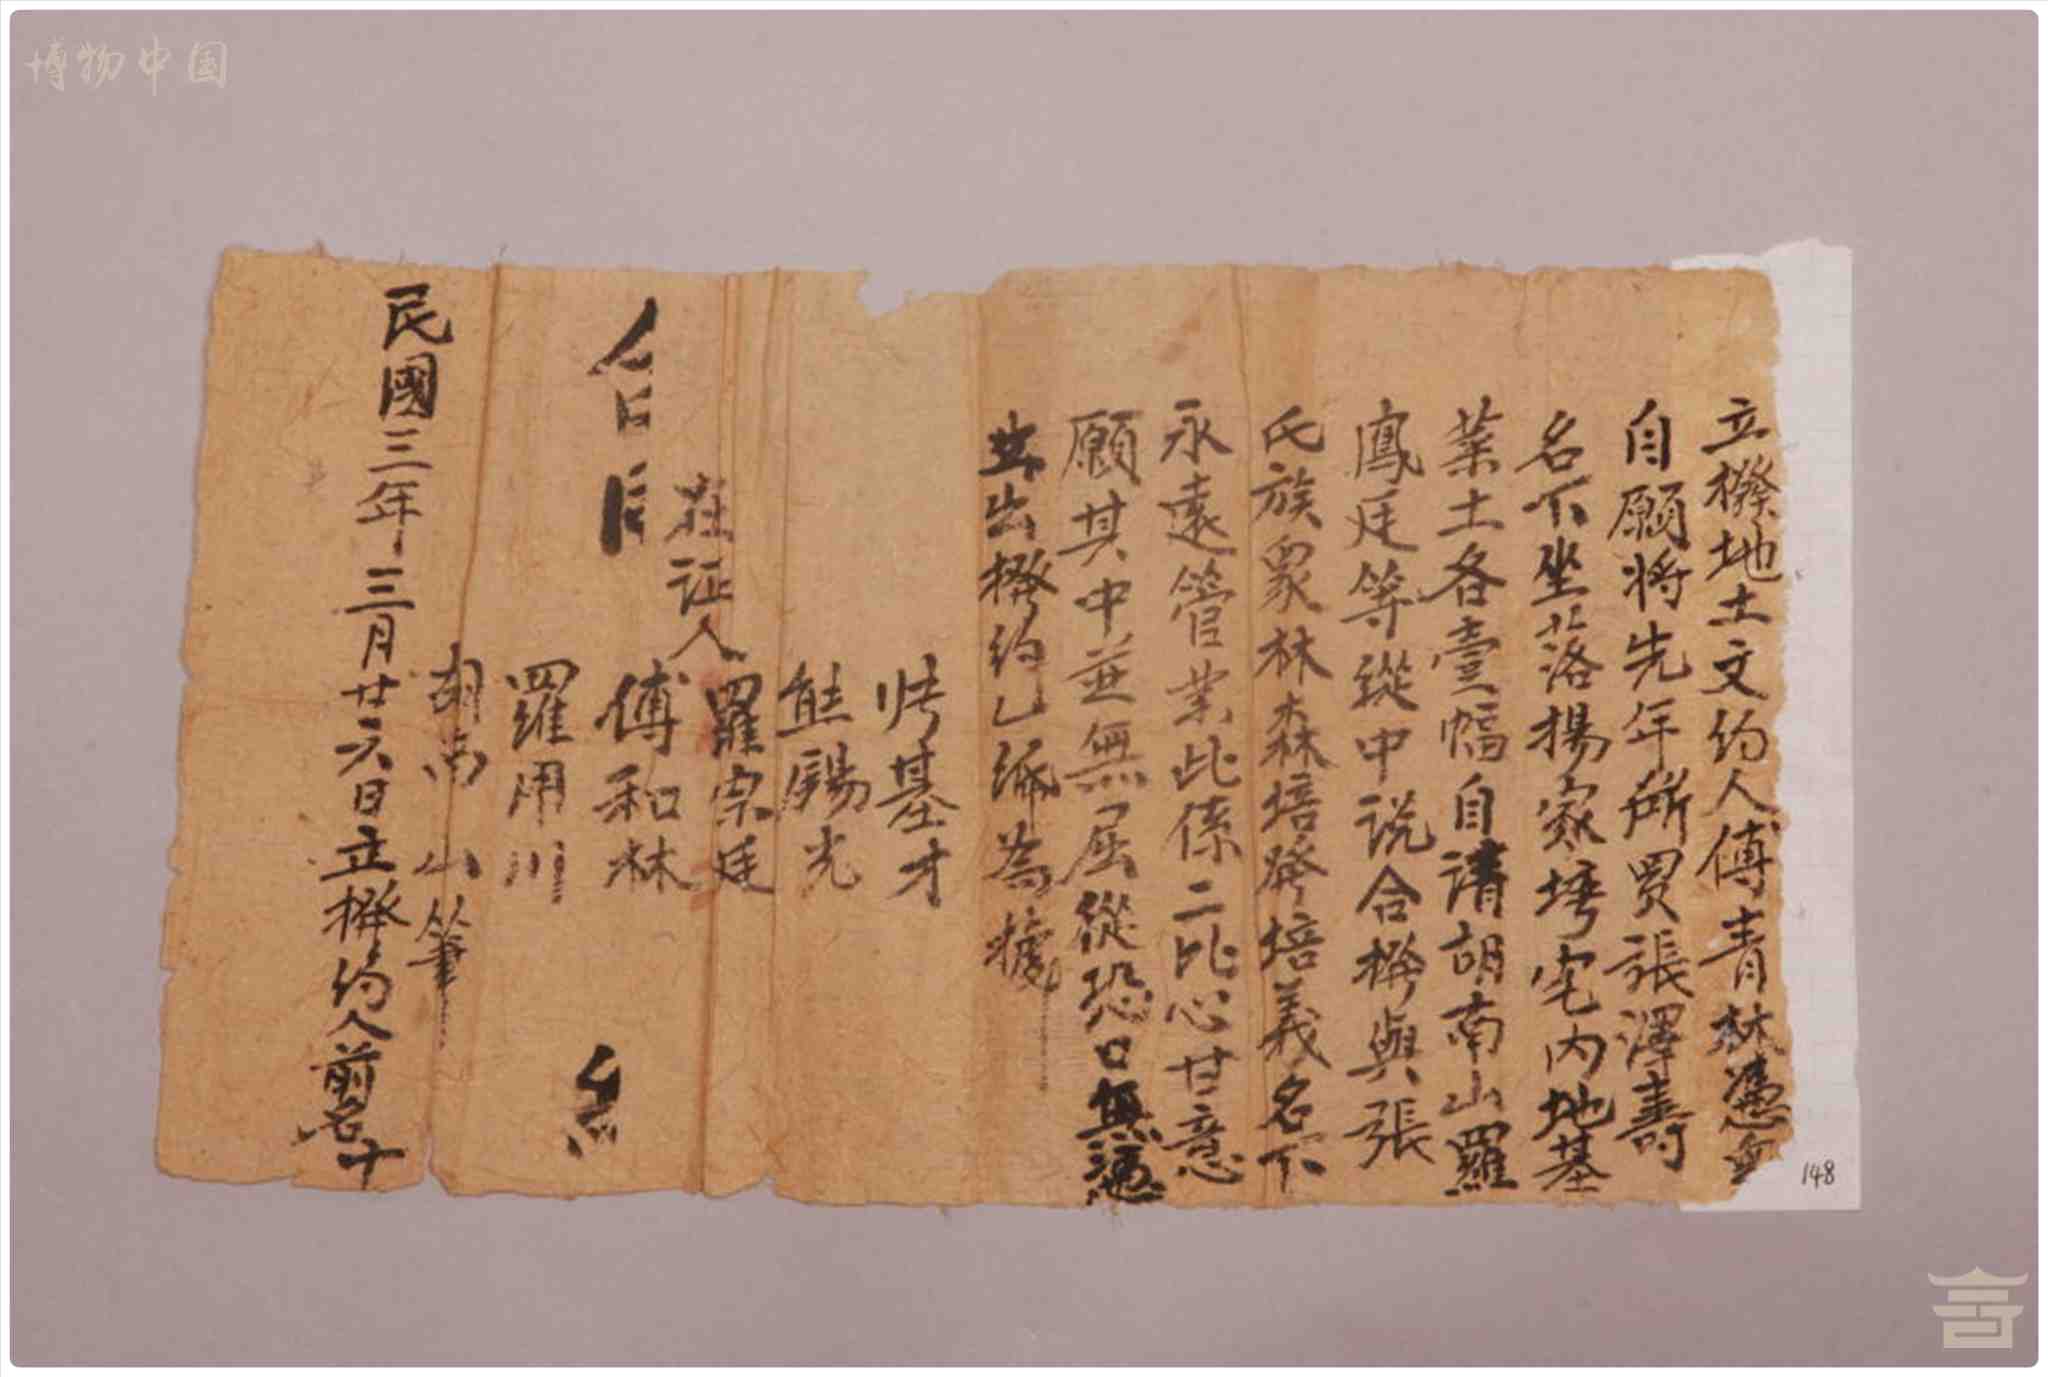 博物中国
立撥地土文約人傅青林憑無
自願将先年所買張澤壽
名下坐落楊家塆宅内地基
業土各壹幅自請胡南山羅
鳳廷等從中説合撥與張
氏族眾林森培發培義名下
永遠管業此係二比心甘意
願其中並無屈從恐口無憑
立出撥約乙紙為據
基才
熊賜光
羅宗廷
在证人
傅和林
羅用川
胡南山筆
民國三年三月廿六日立撥約人前名十
148